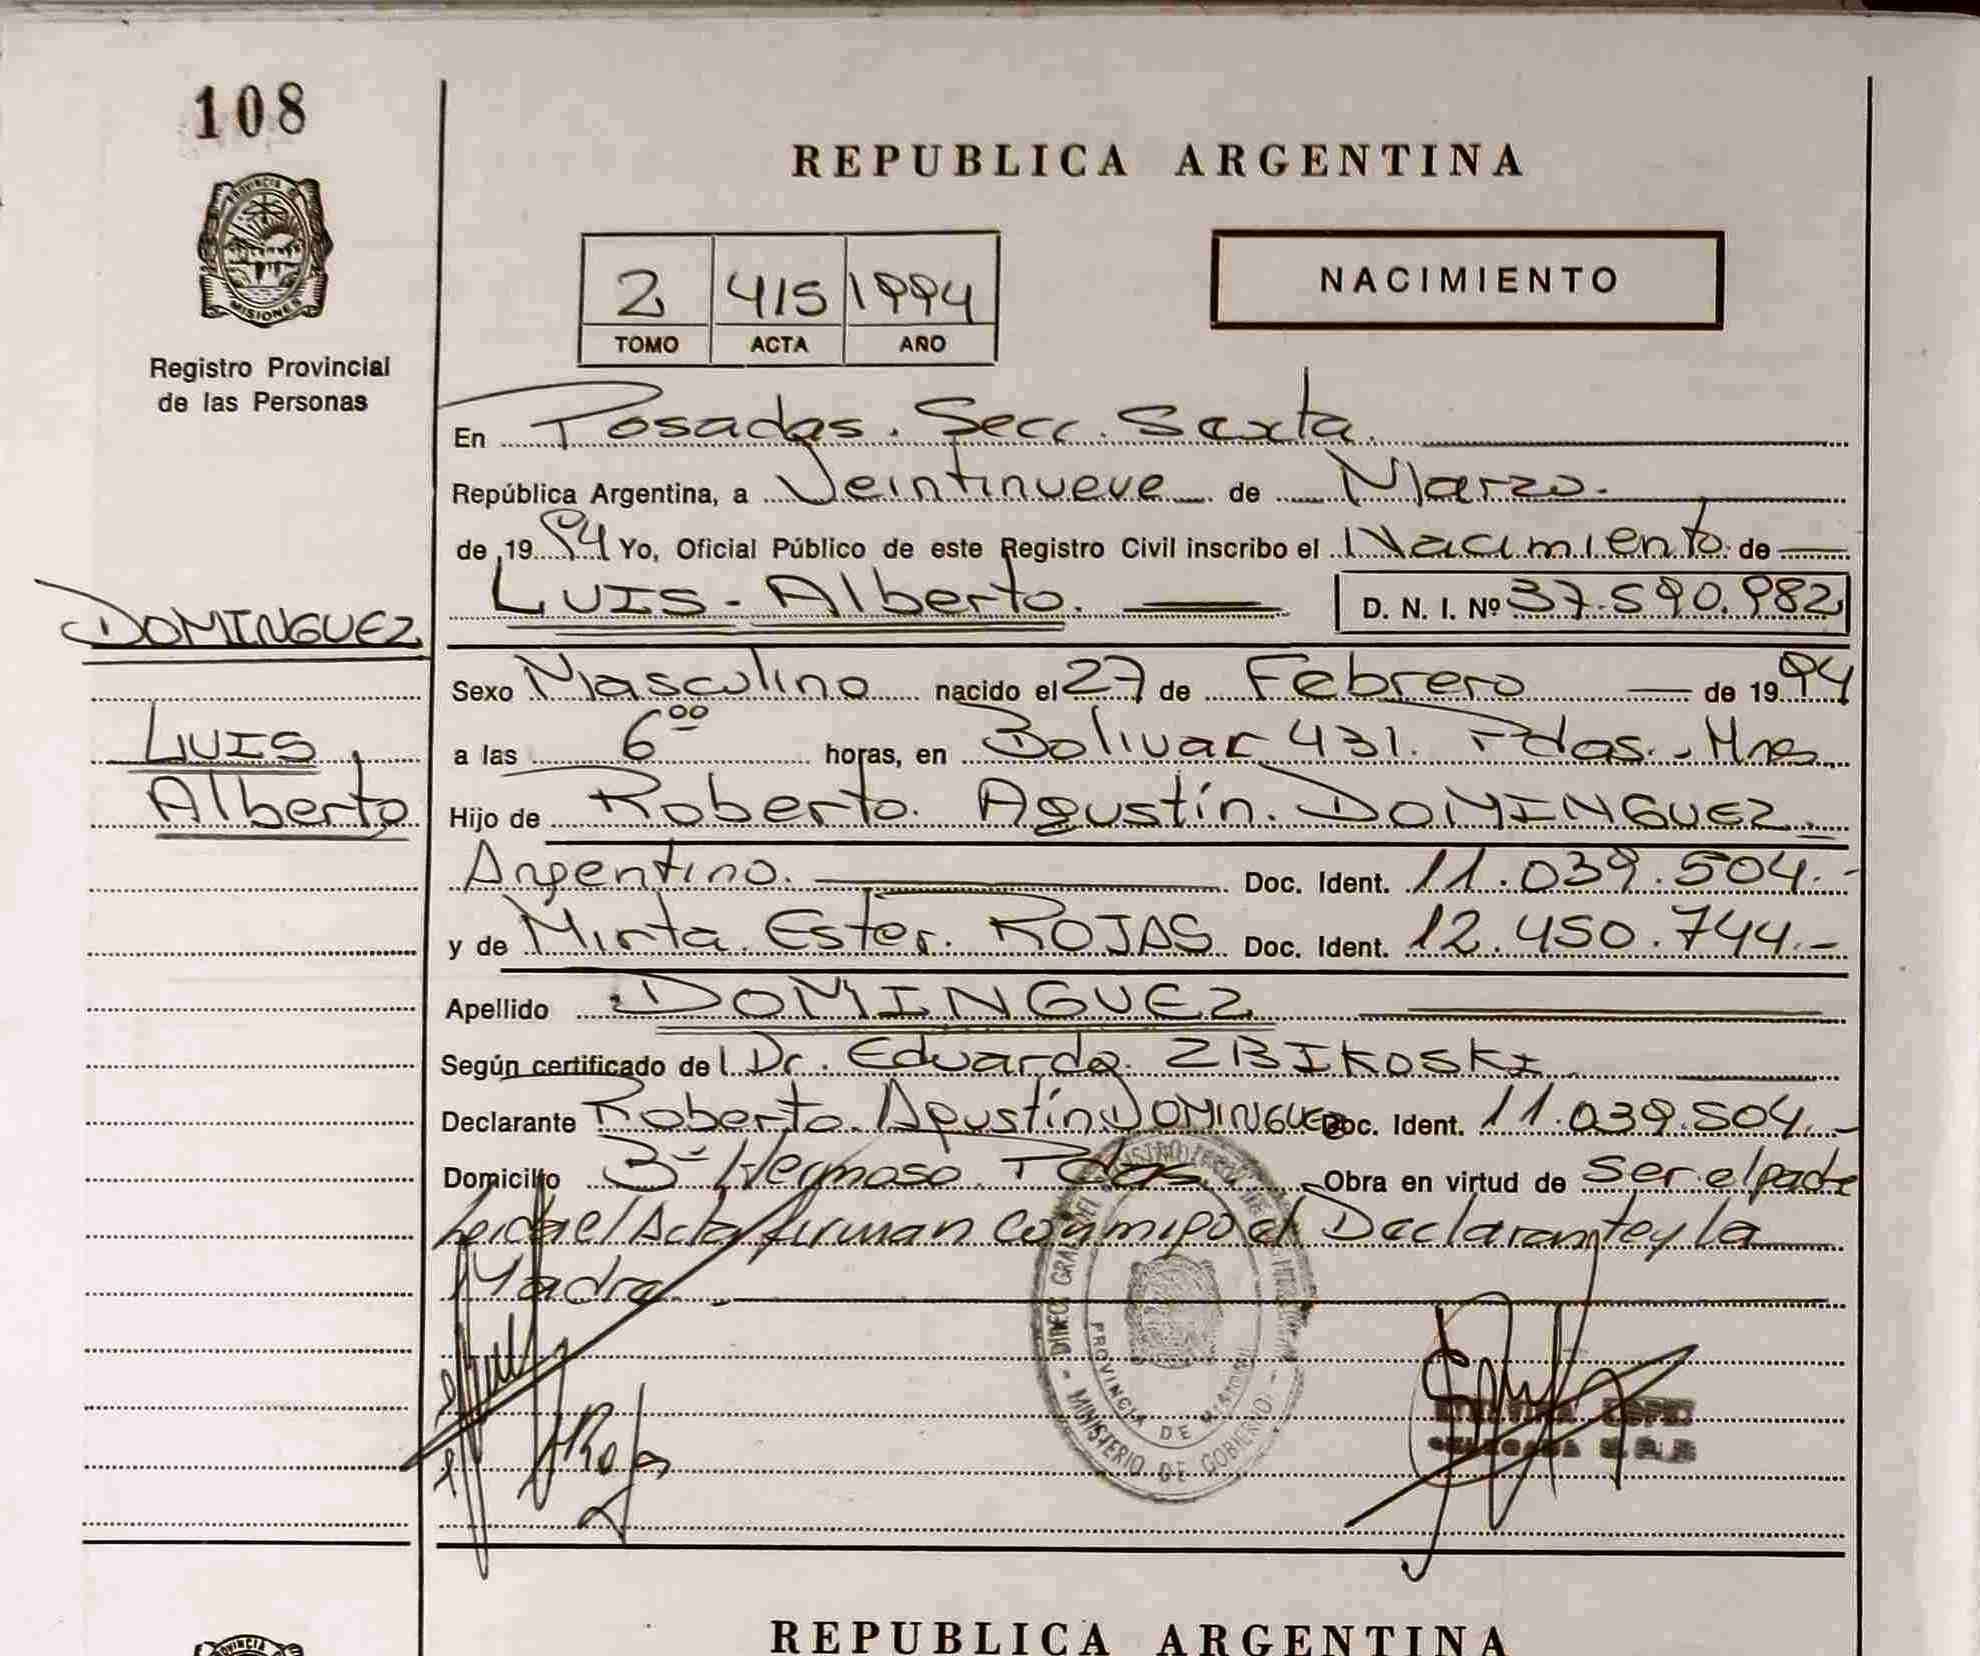 108
PROVINCIA DE
MISIONES
Registro Provincial
de las Personas
DOMINGUEZ
Luis
Alberto
REPUBLICA ARGENTINA
2 415 1994
TOMO ACTA AÑO
NACIMIENTO
En Posadas. Secc. Sexta.
República Argentina, a Veintinueve de Marzo.
de 1994 Yo, Oficial Público de este Registro Civil inscribo el Nacimiento de
Luis - Alberto. D. N. I. Nº 37.590.982
Sexo Masculino nacido el 27 de Febrero de 1994
a las 6 00 horas, en Bolivar 431. Pdas. Mnes
Hijo de Roberto. Agustín. DOMINGUEZ.
Argentino. Doc. Ident. 11.039.504.-
y de Mirta Ester. ROJAS Doc. Ident. 12.450.744.-
Apellido DOMINGUEZ
Según certificado de l Dr. Eduardo ZBIKOSKI
Declarante Roberto Agustín DOMINGUEZ Doc. Ident. 11.039.504.-
Domicilio Bº Hermoso. Pdas. Obra en virtud de ser el padre
Leida el Acta firman conmigo el Declarante y la
Madre
PROVINCIA DE MISIONES
MINISTERIO DE GOBIERNO
Rojas
REPUBLICA ARGENTINA